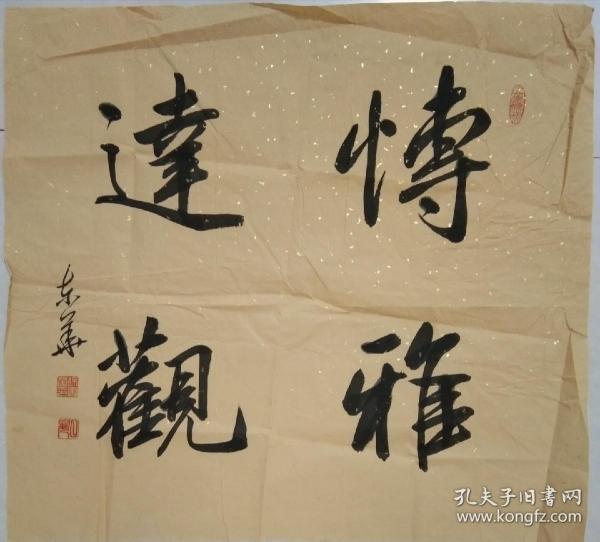 愽雅
達觀
东華
孔夫子旧書网
www.kongfz.com